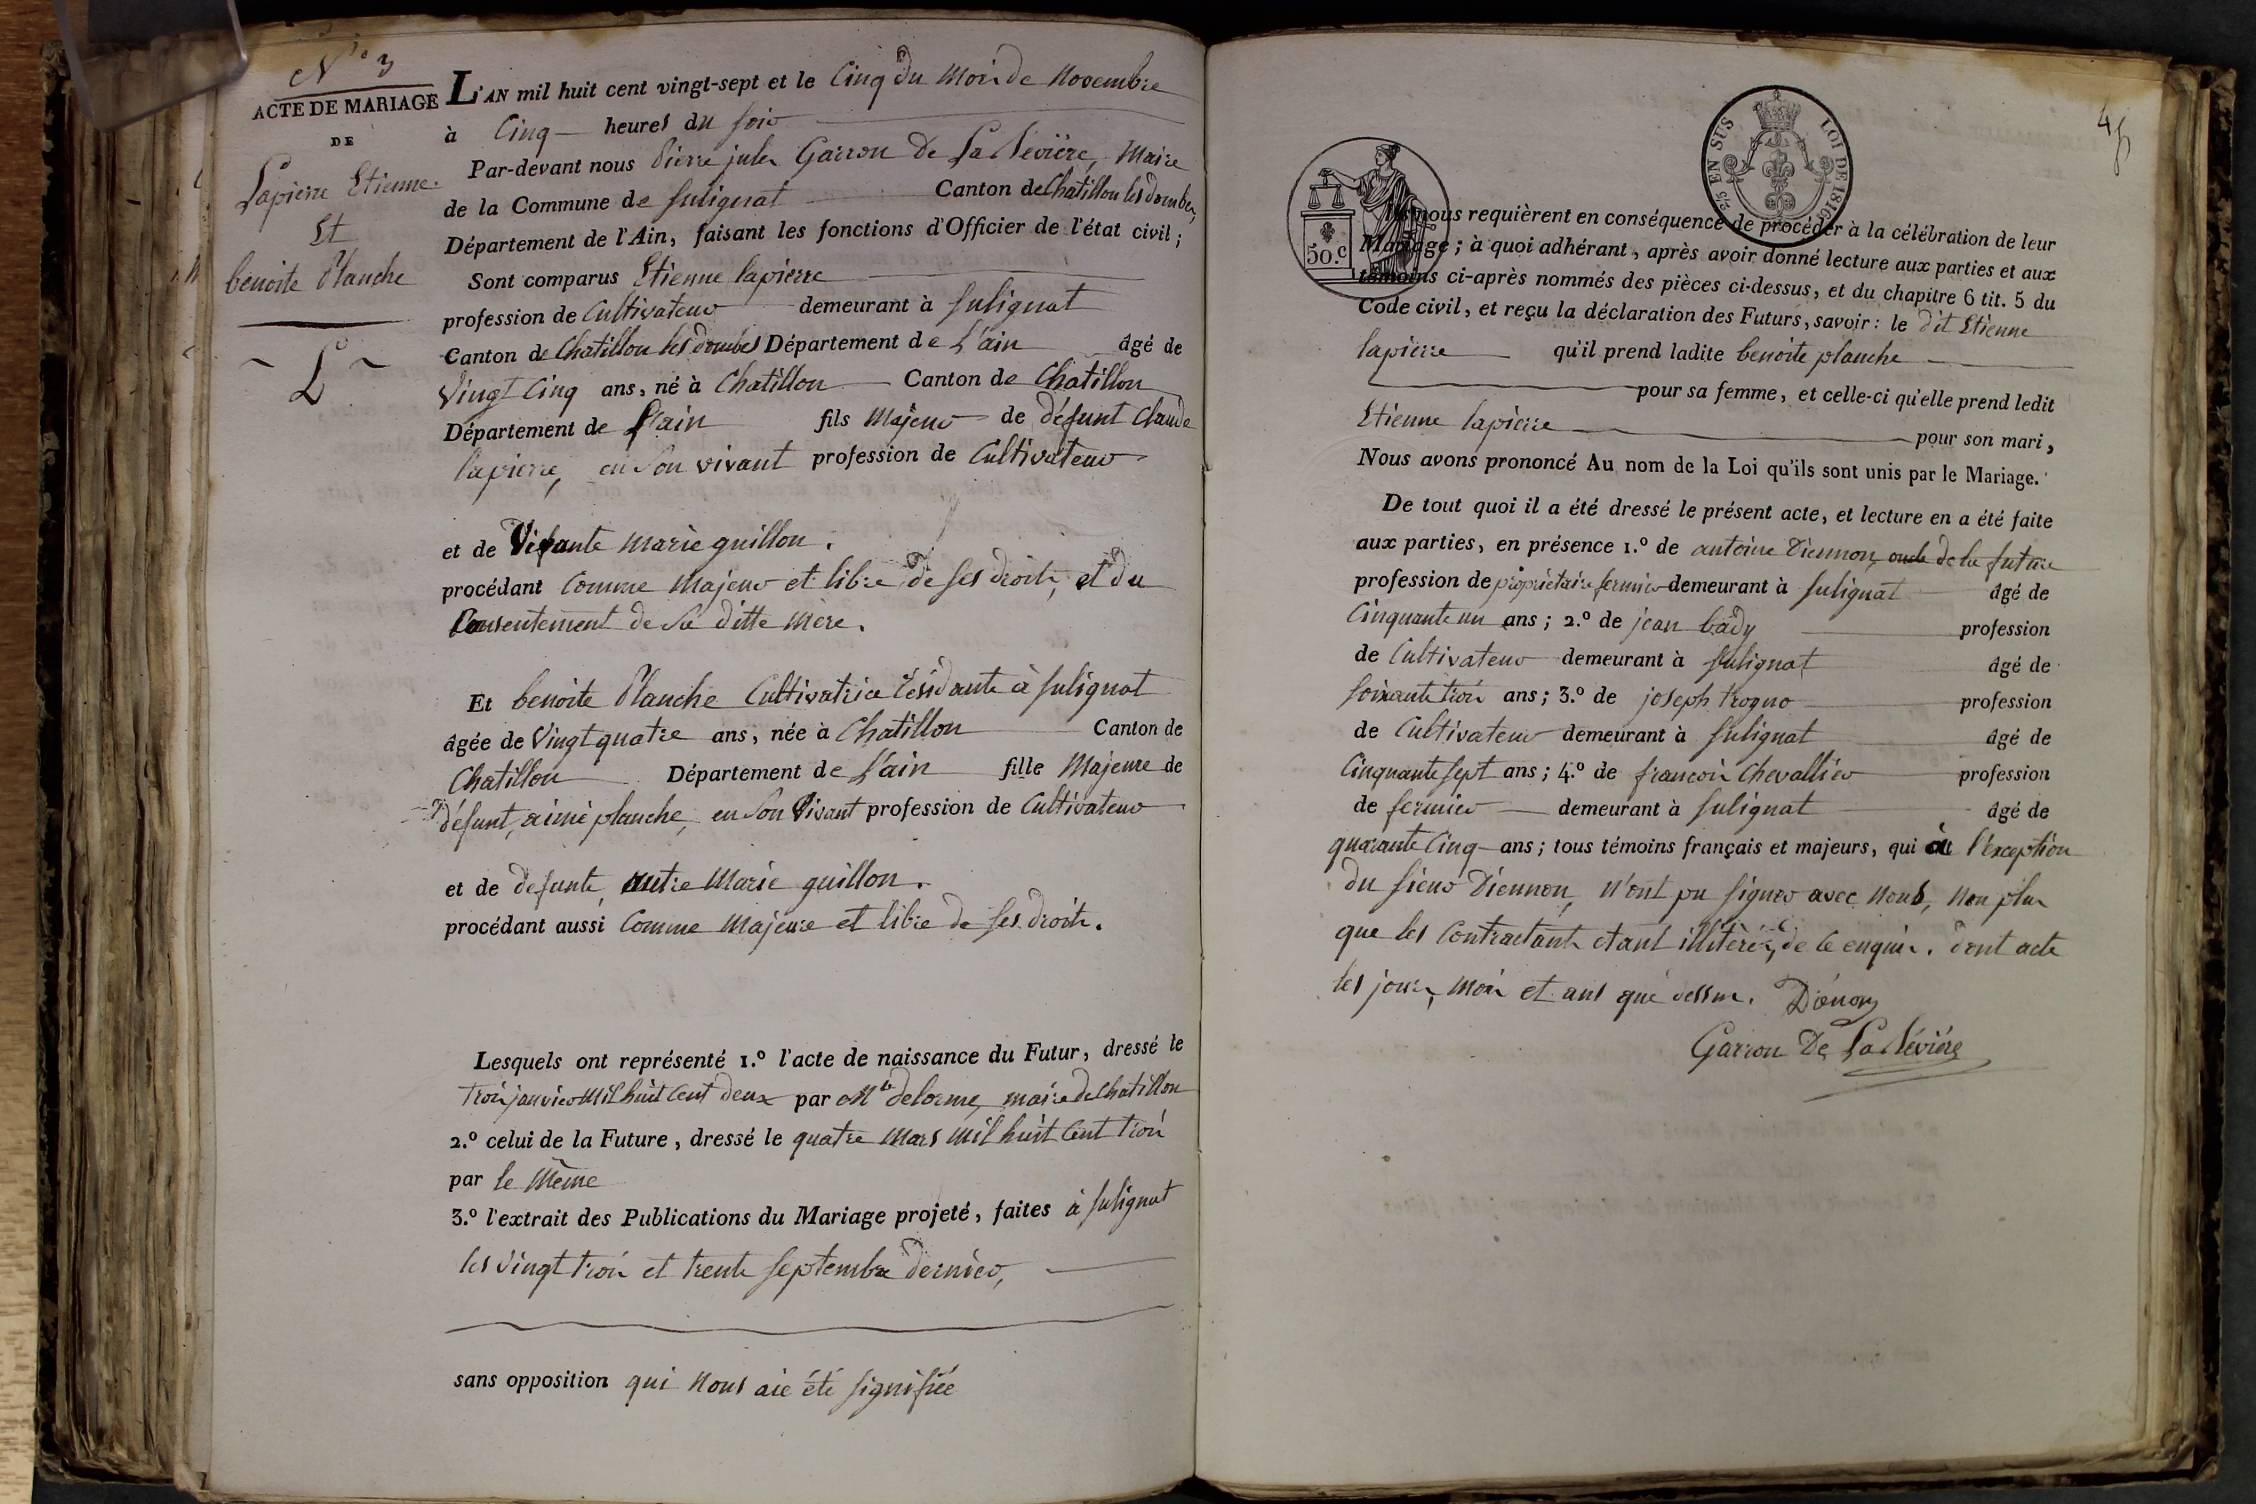 N.° 3
ACTE DE MARIAGE
DE
Lapierre Etienne.
Et
benoite Planche
L'AN mil huit cent vingt-sept et le Cinq du Mois de Novembre
à Cinq heures du soir
Par-devant nous Pierre jules Garron De La Sévière, Maire
de la Commune de Sulignat Canton de Chatillon les dombes,
Département de l'Ain, faisant les fonctions d'Officier de l'état civil;
Sont comparus Etienne lapierre
profession de Cultivateur demeurant à Sulignat
Canton de Chatillon les dombes Département de L'ain âgé de
Vingt Cinq ans, né à Chatillon Canton de Chatillon
Département de L'ain fils Majeur de défunt Claude
lapierre, en son vivant profession de Cultivateur
et de Vivante Marie guillon.
procédant Comme Majeur et libre de ses droits, et du
Consentement de sa ditte Mère.
Et benoite Planche Cultivatrice résidante à Sulignat
âgée de Vingt quatre ans, née à Chatillon Canton de
Chatillon Département de L'ain fille Majeure de
défunt, aimé planche, en son Vivant profession de Cultivateur
et de défunte, autre Marie guillon.
procédant aussi Comme Majeure et libre de ses droits.
Lesquels ont représenté 1.° l'acte de naissance du Futur, dressé le
trois janvier Mil huit Cent deux par Mr delorme, maire de Chatillon
2.° celui de la Future, dressé le quatre Mars Mil huit Cent trois
par le Même
3.° l'extrait des Publications du Mariage projeté, faites à Sulignat
les Vingt trois et trente septembre dernier,
sans opposition qui Nous aie été signifiée
50.C
2/5 EN SUS LOI DE 1816
45
Ils nous requièrent en conséquence de procéder à la célébration de leur
Mariage; à quoi adhérant, après avoir donné lecture aux parties et aux
témoins ci-après nommés des pièces ci-dessus, et du chapitre 6 tit. 5 du
Code civil, et reçu la déclaration des Futurs, savoir: le dit Etienne
lapierre qu'il prend ladite benoite planche
pour sa femme, et celle-ci qu'elle prend ledit
Etienne lapierre pour son mari,
Nous avons prononcé Au nom de la Loi qu'ils sont unis par le Mariage.
De tout quoi il a été dressé le présent acte, et lecture en a été faite
aux parties, en présence 1.° de antoine Diennon, oncle de la future
profession de propriétaire fermier demeurant à Sulignat âgé de
Cinquante un ans; 2.° de jean bady profession
de Cultivateur demeurant à Sulignat âgé de
soixante trois ans; 3.° de joseph trogno profession
de Cultivateur demeurant à Sulignat âgé de
Cinquante sept ans; 4.° de francois Chevallier profession
de fermier demeurant à Sulignat âgé de
quarante Cinq ans; tous témoins français et majeurs, qui à l'exception
du sieur Diennon, n'ont pu signer avec Nous, Non plus
que les Contractants étant illitérés, de ce enquis. dont acte
les jour, Mois et ans que dessus.
Garron De La Sévière